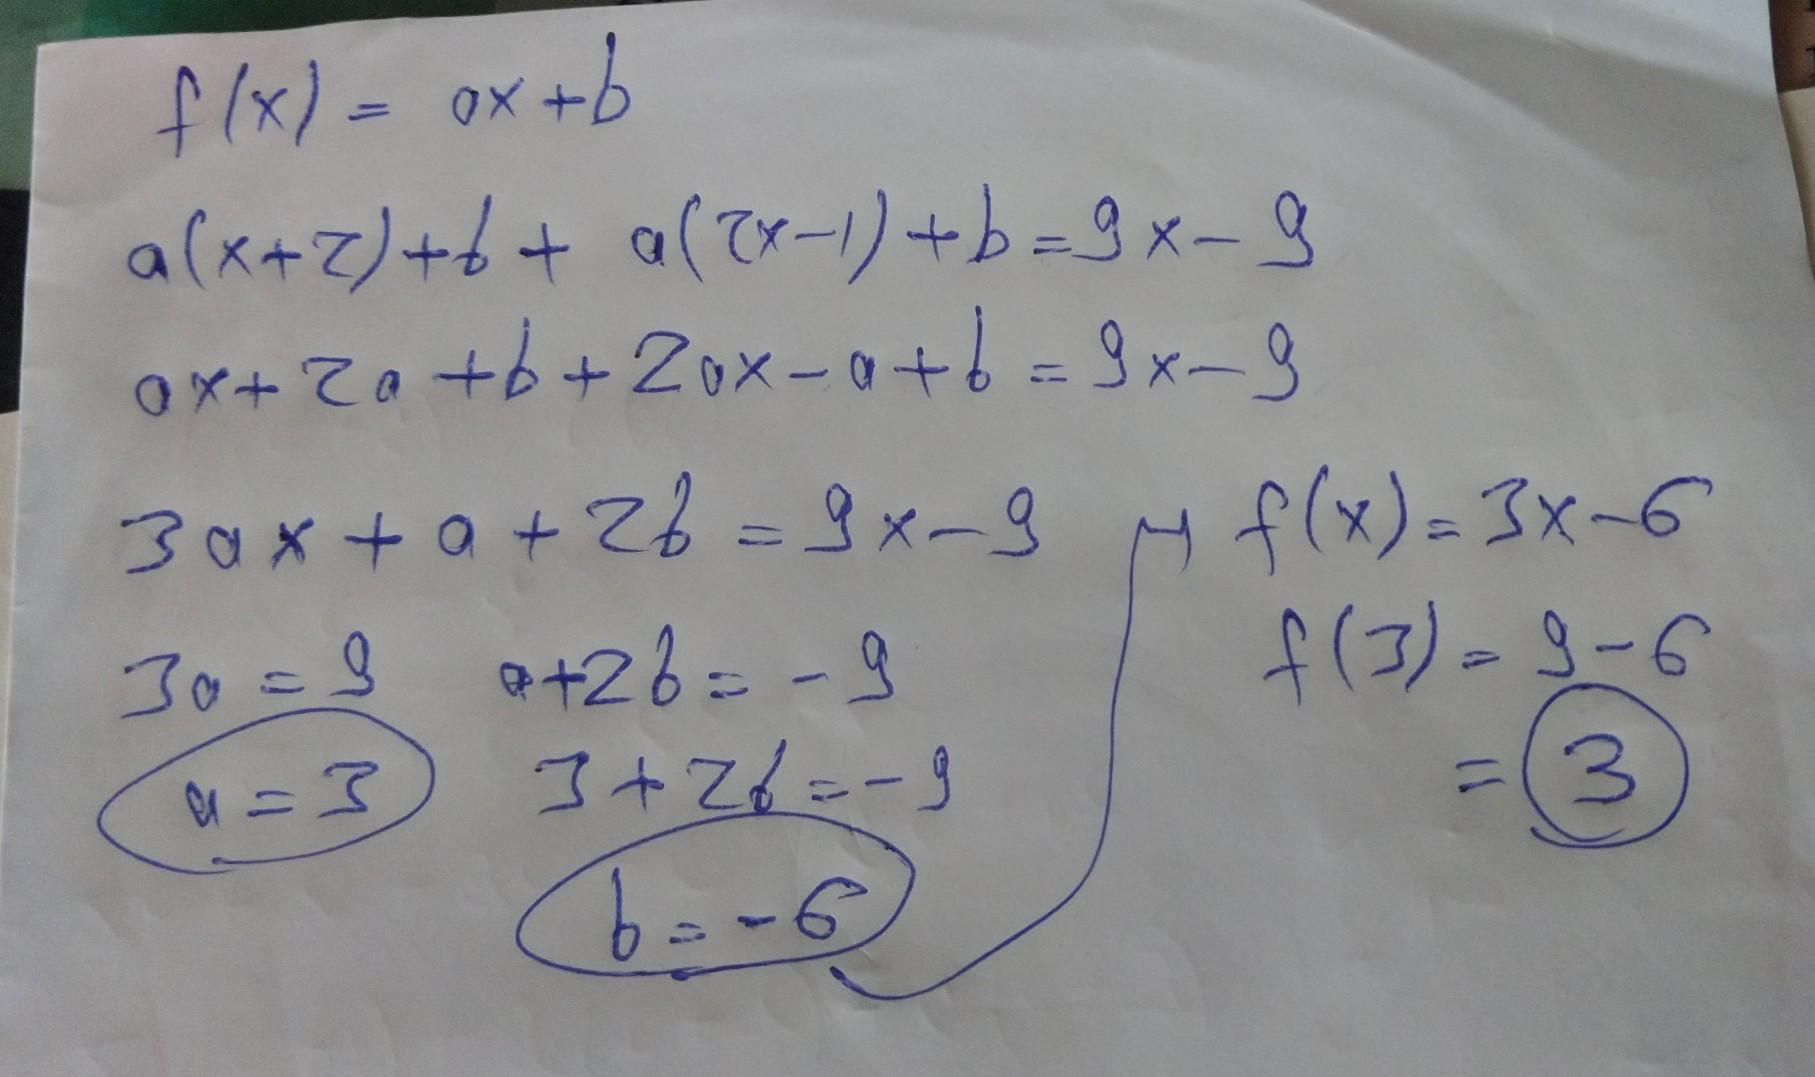 f(x) = ax+b
a(x+2)+b + a(2x-1)+b=9x-9
ax+2a+b+2ax-a+b=9x-9
3ax+a+2b=9x-9
3a=9 a+2b=-9
a=3 3+2b=-9
b=-6
f(x)=3x-6
f(3)=9-6
=3